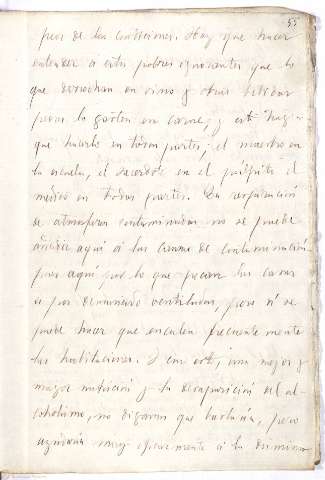 55
peor de las condiciones. Hay que hacer
entender a estos pobres ignorantes que lo
que derrochan en vino y otras bebidas
para lo gasten en carne, y esto hay
que hacerlo en todas partes; el maestro en
la escuela, el sacerdote en el púlpito el
medico en todas partes. La respiración
de atmosferas contaminadas no se puede
añadir aquí a las causas de contaminación
pues aquí por lo que pecan las casas
es por demasiado ventiladas, pero si se
puede hacer que encalen frecuentemente
las habitaciones. Y con esto, una mejor y
mayor nutrición y la desaparición del al-
coholismo, no digamos que bastaría, pero
ayudaría muy eficazmente a la disminu